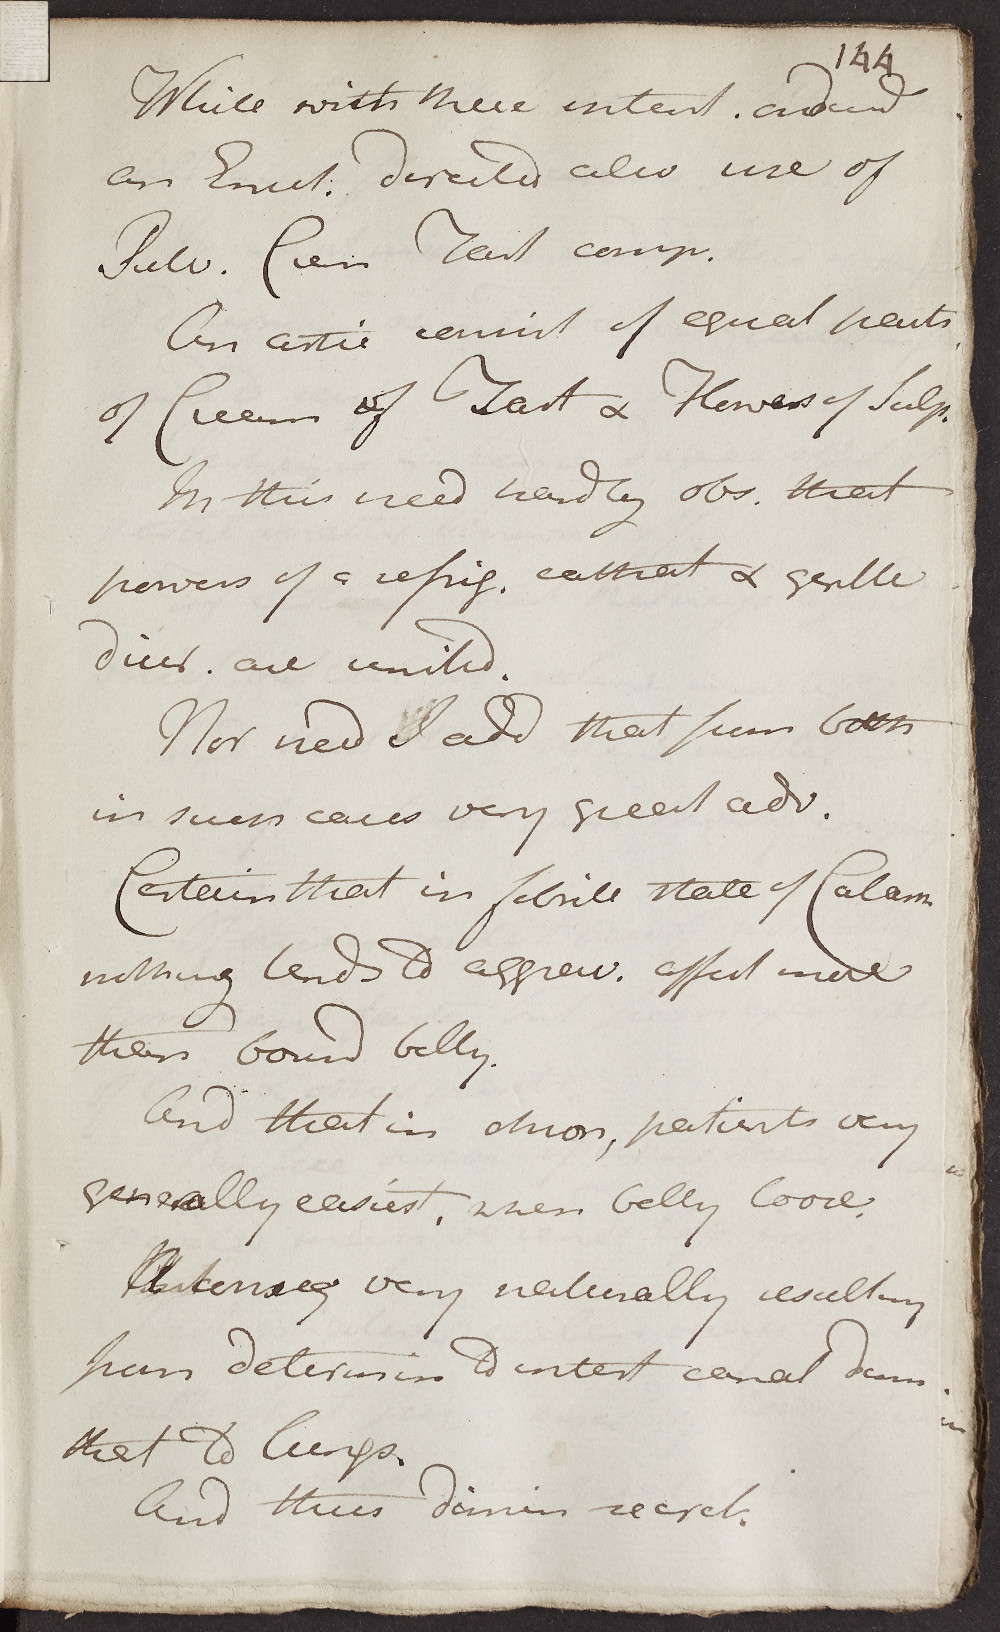 144
While with these intent. ordered
an Emet. directed also use of
Pulv. Crem Tart comp.
An artic consist of equal parts
of Cream of Tart & Flowers of Sulp.
In this need hardly obs. that
powers of a refrig. cathart & gentle
diur. are united.
Nor need I add that from both
in such cases very great adv.
Certain that in febrile state of Catarrh
nothing tends to aggrav. affect more
than bound belly.
And that in chron, patients very
generally easiest, when belly loose.
very naturally resulting
from determin to intest canal dimin
that to lungs.
And thus dimin secret.